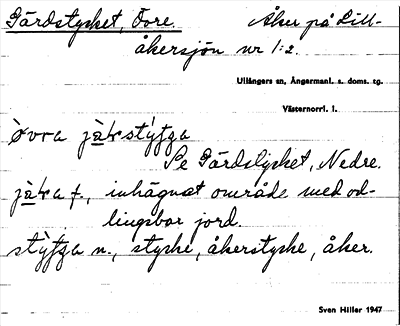 Gärdstycket, Övre. Åker på Lill-
åkersjön nr 1:2.
Ullångers sn, Ångermanl. s. doms. tg.
Västernorrl. l.
Se Gärdstycket, Nedre.
f., inhägnat område med od-
lingsbar jord.
n., stycke, åkerstycke, åker.
Sven Hiller 1947